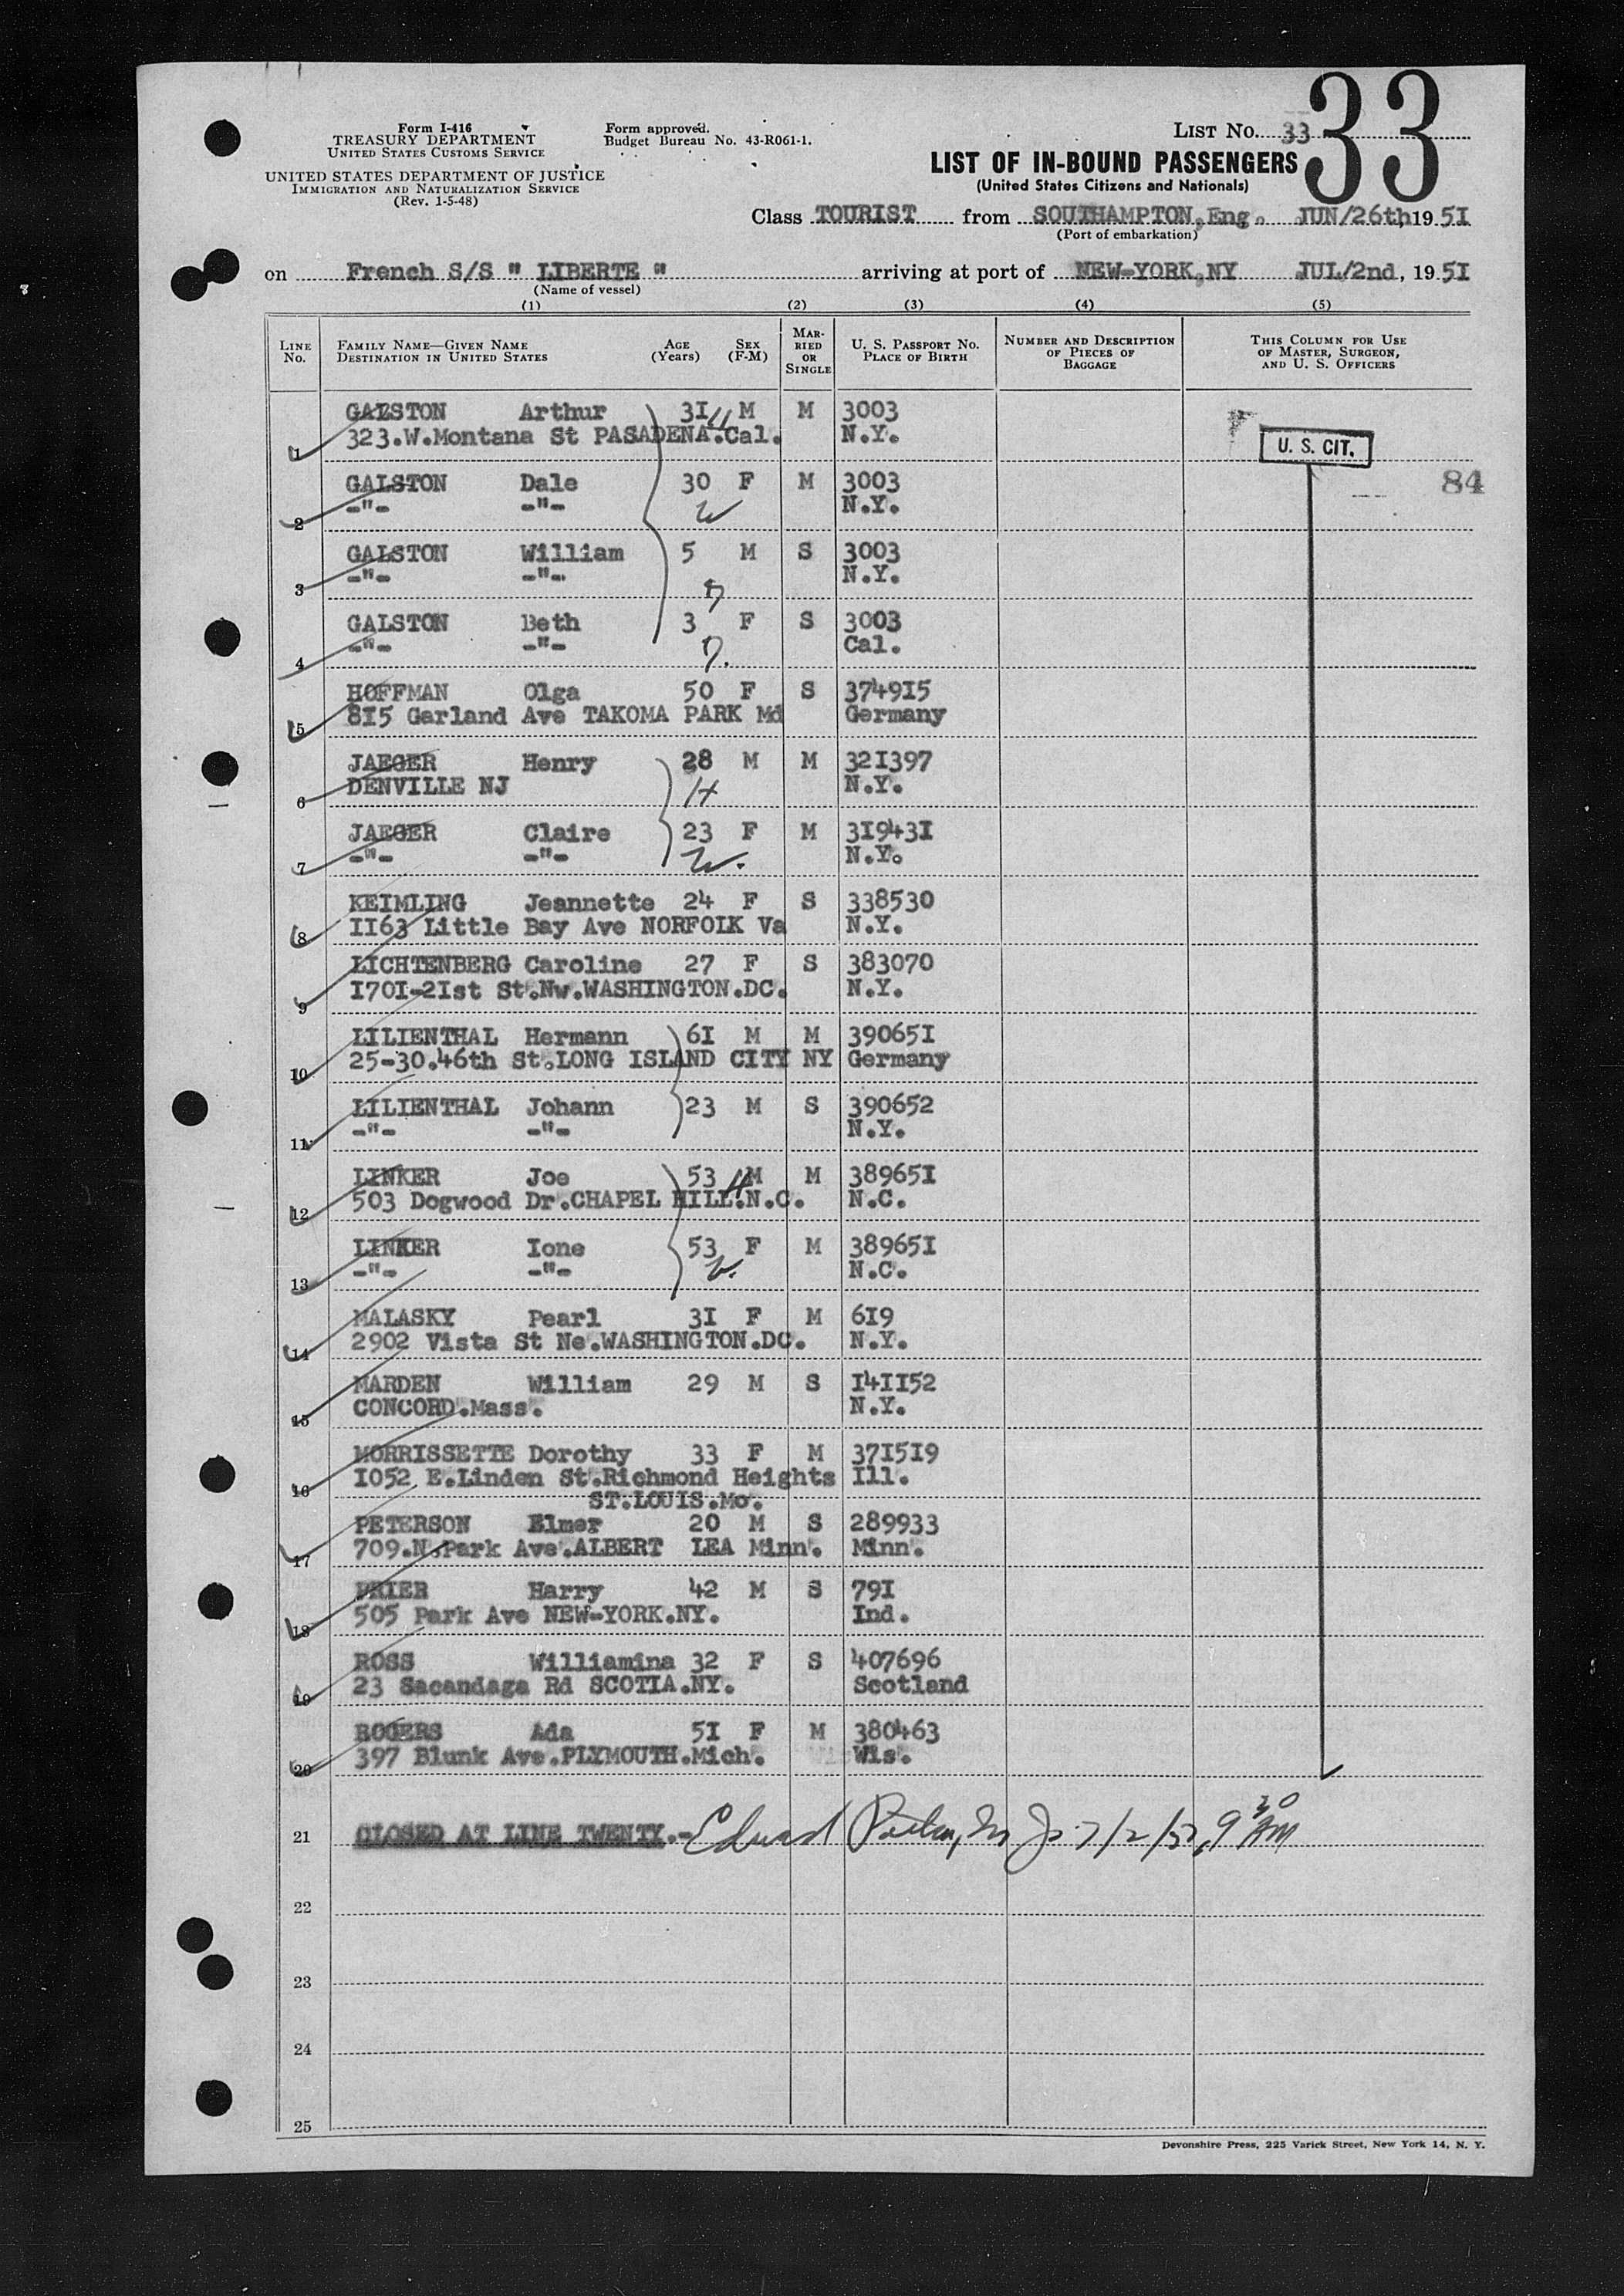 33
Form I-416
TREASURY DEPARTMENT
UNITED STATES CUSTOMS SERVICE
UNITED STATES DEPARTMENT OF JUSTICE
IMMIGRATION AND NATURALIZATION SERVICE
(Rev. 1-5-48)
Form approved.
Budget Bureau No. 43-R061-1.
LIST NO. 33
LIST OF IN-BOUND PASSENGERS
(United States Citizens and Nationals)
Class TOURIST from SOUTHAMPTON, Eng. JUN/26th 1951
(Port of embarkation)
on French S/S " LIBERTE " arriving at port of NEW-YORK,NY JUL/2nd, 1951
(Name of vessel)
(1) (2) (3) (4) (5)
LINE No. FAMILY NAME—GIVEN NAME DESTINATION IN UNITED STATES AGE (Years) SEX (F-M) MARRIED OR SINGLE U. S. PASSPORT NO. PLACE OF BIRTH NUMBER AND DESCRIPTION OF PIECES OF BAGGAGE THIS COLUMN FOR USE OF MASTER, SURGEON, AND U. S. OFFICERS
GALSTON Arthur 3I M M 3003
1 323.W.Montana St PASADENA.Cal. N.Y.
U. S. CIT.
GALSTON Dale 30 F M 3003 84
2 -"- -"- W N.Y.
GALSTON William 5 M S 3003
3 -"- -"- N.Y.
GALSTON Beth 3 F S 3003
4 -"- -"- Cal.
HOFFMAN Olga 50 F S 3749I5
5 8I5 Garland Ave TAKOMA PARK Md Germany
JAEGER Henry 28 M M 32I397
6 DENVILLE NJ H N.Y.
JAEGER Claire 23 F M 3I943I
7 -"- -"- W. N.Y.
KEIMLING Jeannette 24 F S 338530
8 II63 Little Bay Ave NORFOLK Va N.Y.
LICHTENBERG Caroline 27 F S 383070
9 I70I-2Ist St.Nw.WASHINGTON.DC. N.Y.
LILIENTHAL Hermann 6I M M 39065I
10 25-30.46th St.LONG ISLAND CITY NY Germany
LILIENTHAL Johann 23 M S 390652
11 -"- -"- N.Y.
LINKER Joe 53 H M M 38965I
12 503 Dogwood Dr.CHAPEL HILL.N.C. N.C.
LINKER Ione 53 F M 38965I
13 -"- -"- W. N.C.
MALASKY Pearl 3I F M 6I9
14 2902 Vista St Ne.WASHINGTON.DC. N.Y.
MARDEN William 29 M S I4II52
15 CONCORD.Mass. N.Y.
MORRISSETTE Dorothy 33 F M 37I5I9
16 I052 E.Linden St.Richmond Heights Ill.
ST.LOUIS.Mo.
PETERSON Elmer 20 M S 289933
17 709.N.Park Ave.ALBERT LEA Minn. Minn.
PRIER Harry 42 M S 79I
18 505 Park Ave NEW-YORK.NY. Ind.
ROSS Williamina 32 F S 407696
19 23 Sacandaga Rd SCOTIA.NY. Scotland
ROGERS Ada 5I F M 380463
20 397 Blunk Ave.PLYMOUTH.Mich. Wis.
21 CLOSED AT LINE TWENTY.- 9 30 AM
22
23
24
25
Devonshire Press, 225 Varick Street, New York 14, N. Y.